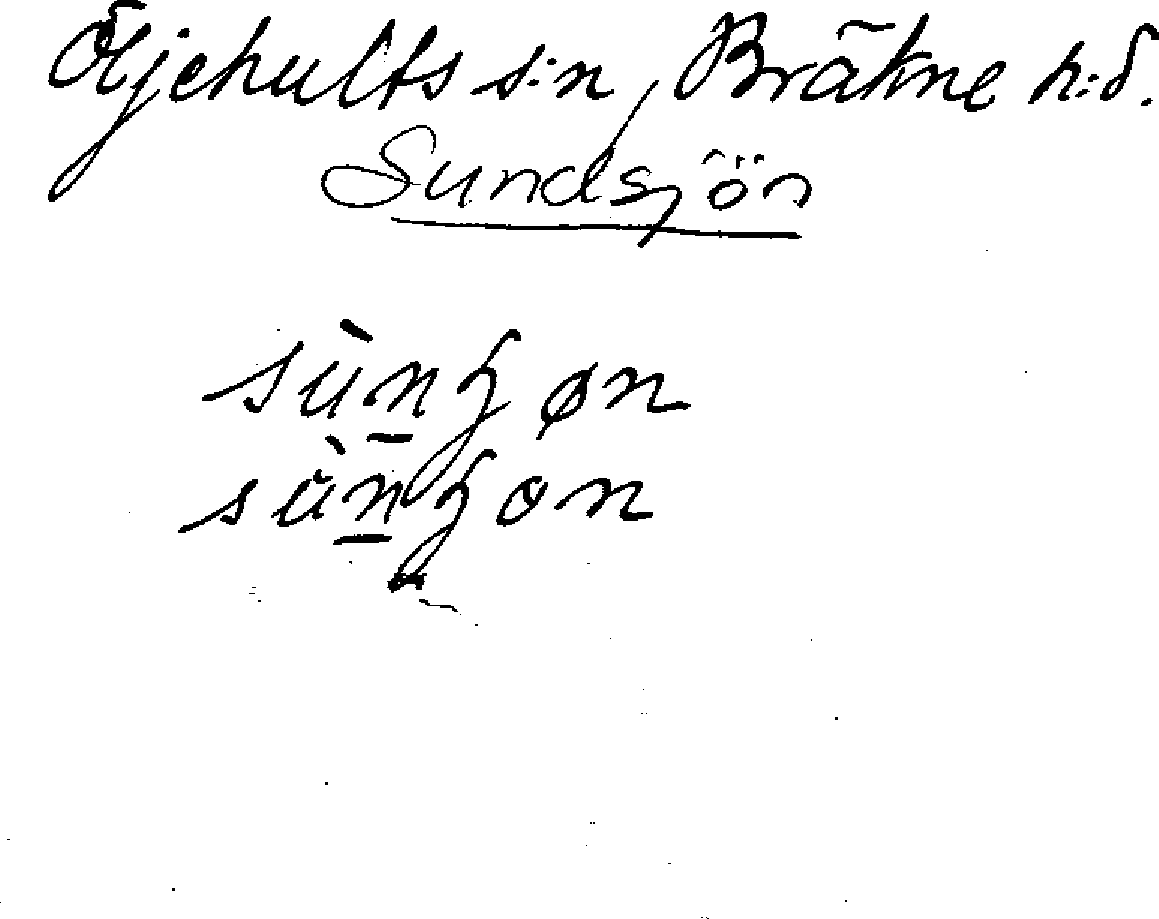 Öljehults s:n, Bräkne h:d.
Sundsjön
sùn̲ʒøn
sùn̲ʒon